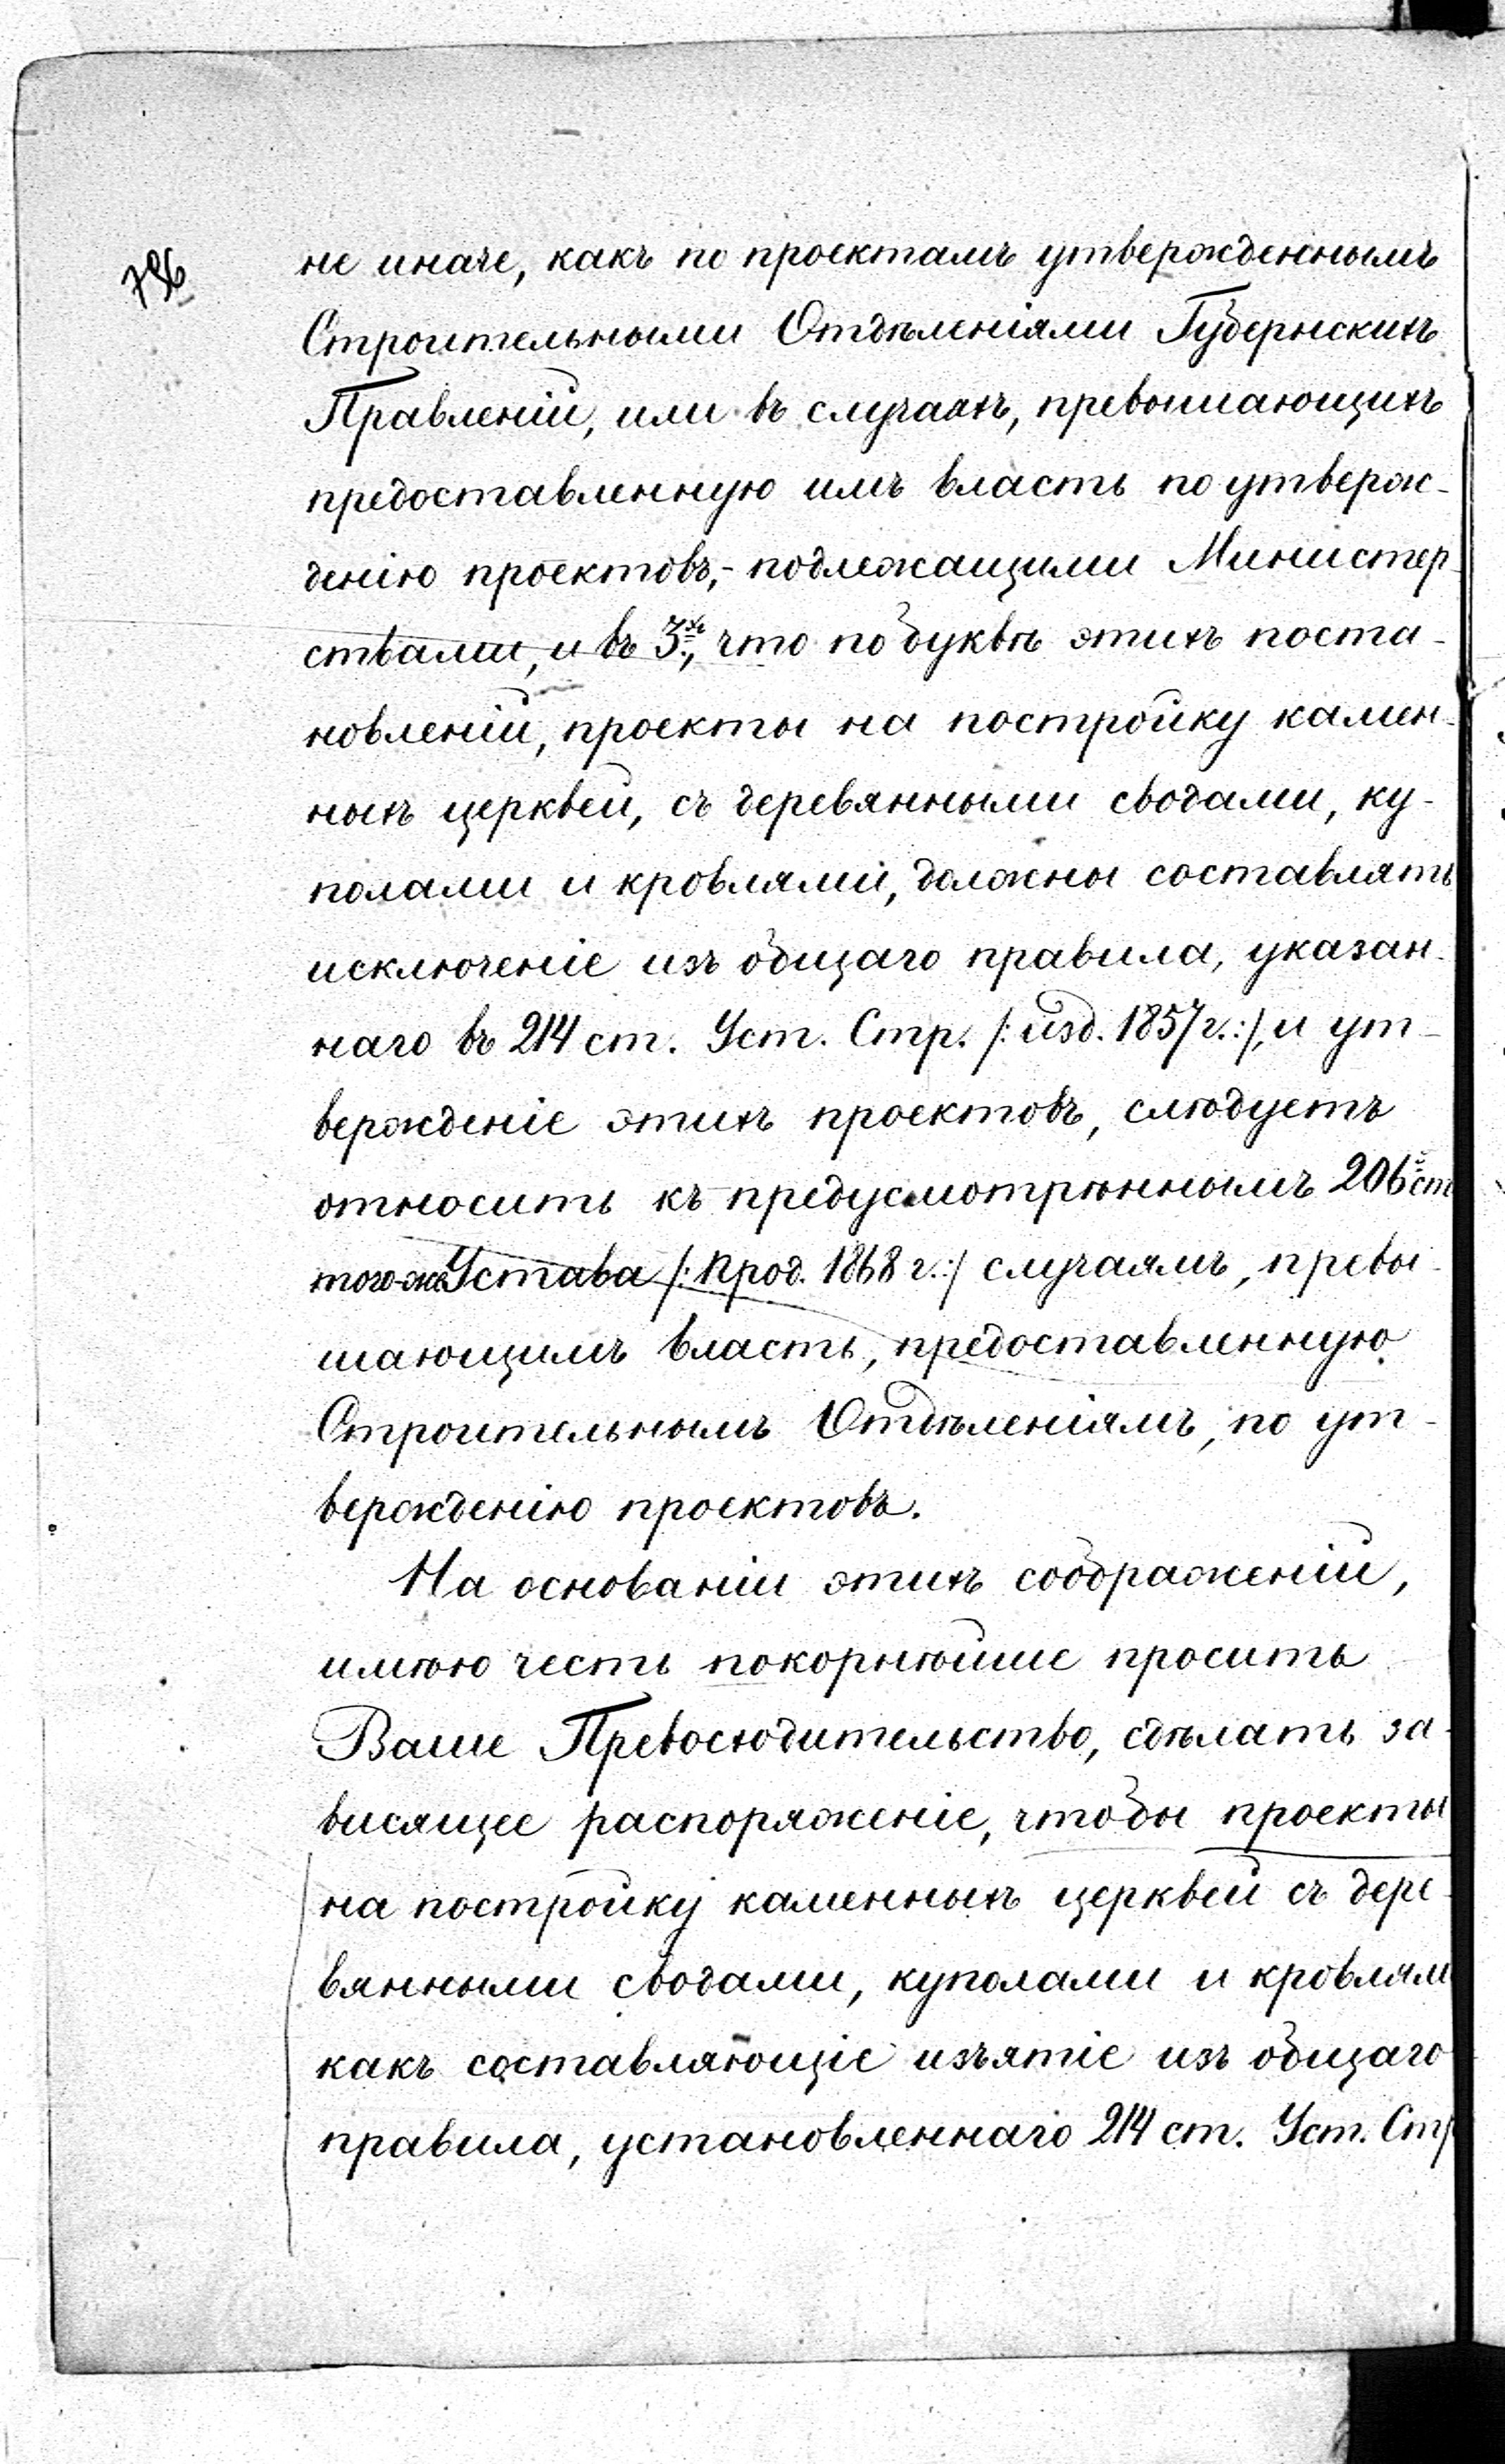 736
не иначе, какъ по проектамъ утвержденнымъ
Строительными Отдѣленіями Губернскихъ
Правленій, или въ случаяхъ, превышающихъ
предоставленную имъ власть по утверж-
денію проектовъ,- подлежащими Министер-
ствами, и въ 3хъ, что по буквѣ этихъ поста-
новленій, проекты на постройку камен-
ныхъ церквей, съ деревянными сводами, ку-
полами и кровлями, должны составлять
исключеніе изъ общаго правила, указан-
наго въ 214 ст. Уст. Стр. /: изд. 1857 г.:/, и ут-
вержденіе этихъ проектовъ, слѣдуетъ
относить къ предусмотрѣннымъ 206й ст
того-же Устава /: Прод. 1868 г.:/ случаямъ, превы-
шающимъ власть, предоставленную
Строительнымъ Отдѣленіямъ, по ут-
вержденію проектовъ.
На основаніи этихъ соображеній,
имѣю честь покорнѣйше просить
Ваше Превосходительство, сдѣлать за-
висящее распоряженіе, чтобы проекты
на постройку каменныхъ церквей съ дере-
вянными сводами, куполами и кровлями
какъ составляющіе изъятіе изъ общаго
правила, установленнаго 214 ст. Уст. Стр